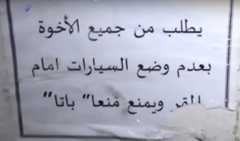 يطلب من جميع الأخوة
بعدم وضع السيارات امام
ويمنع منعا" باتا"